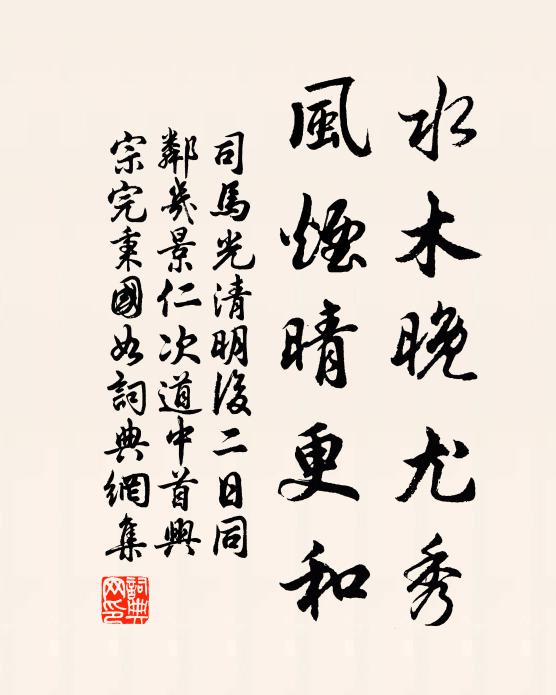 水木晚尤秀
風煙晴更和
司馬光清明後二日同
鄰幾景仁次道中首興
宗完秉國如詞典網集
詞典網印